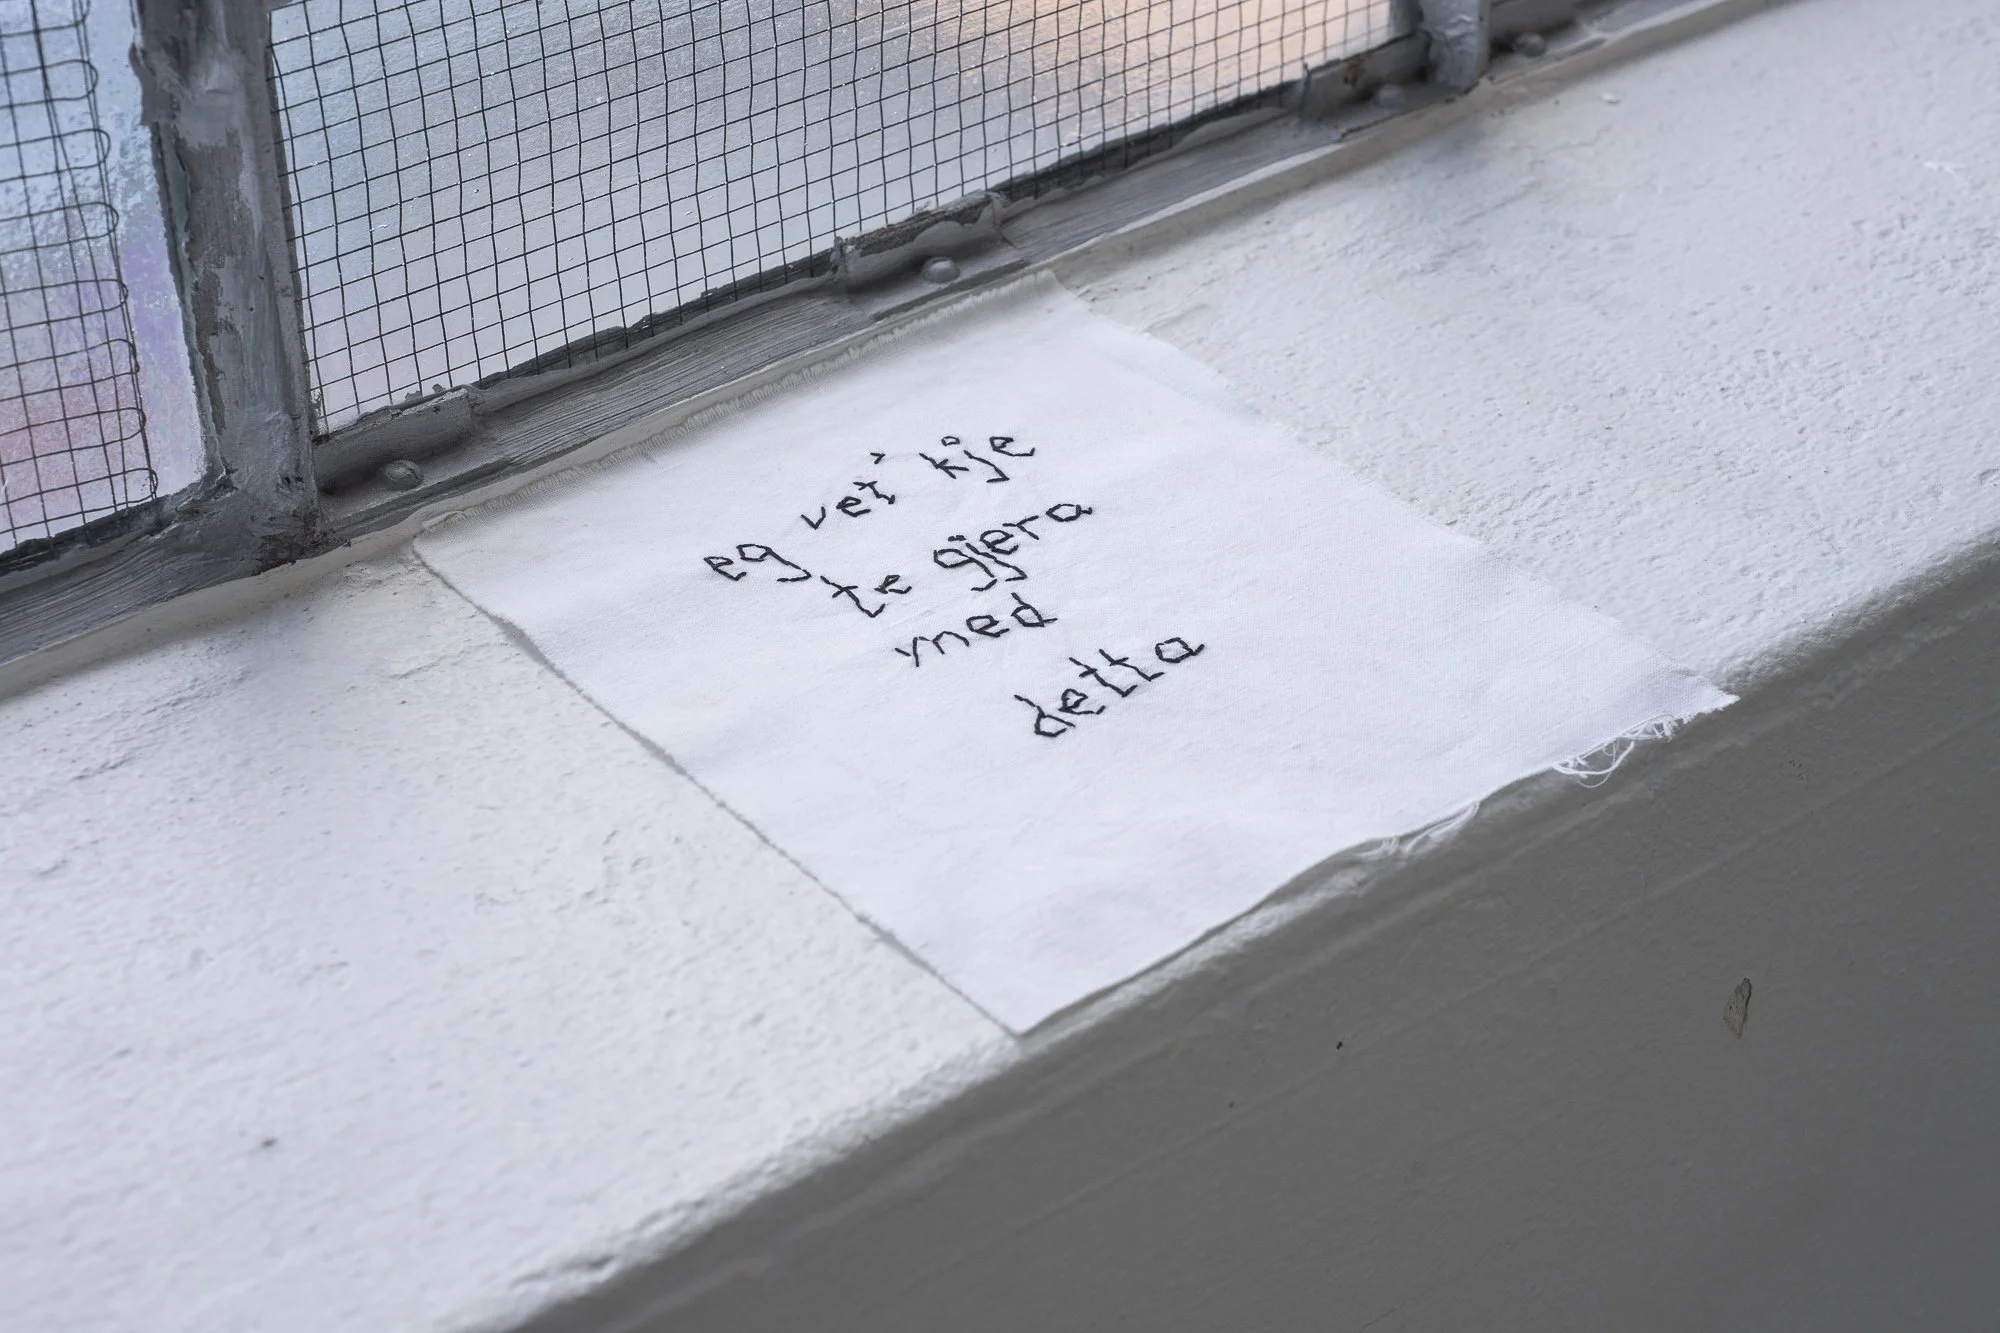 eg vet' kje
te gjera
med
detta